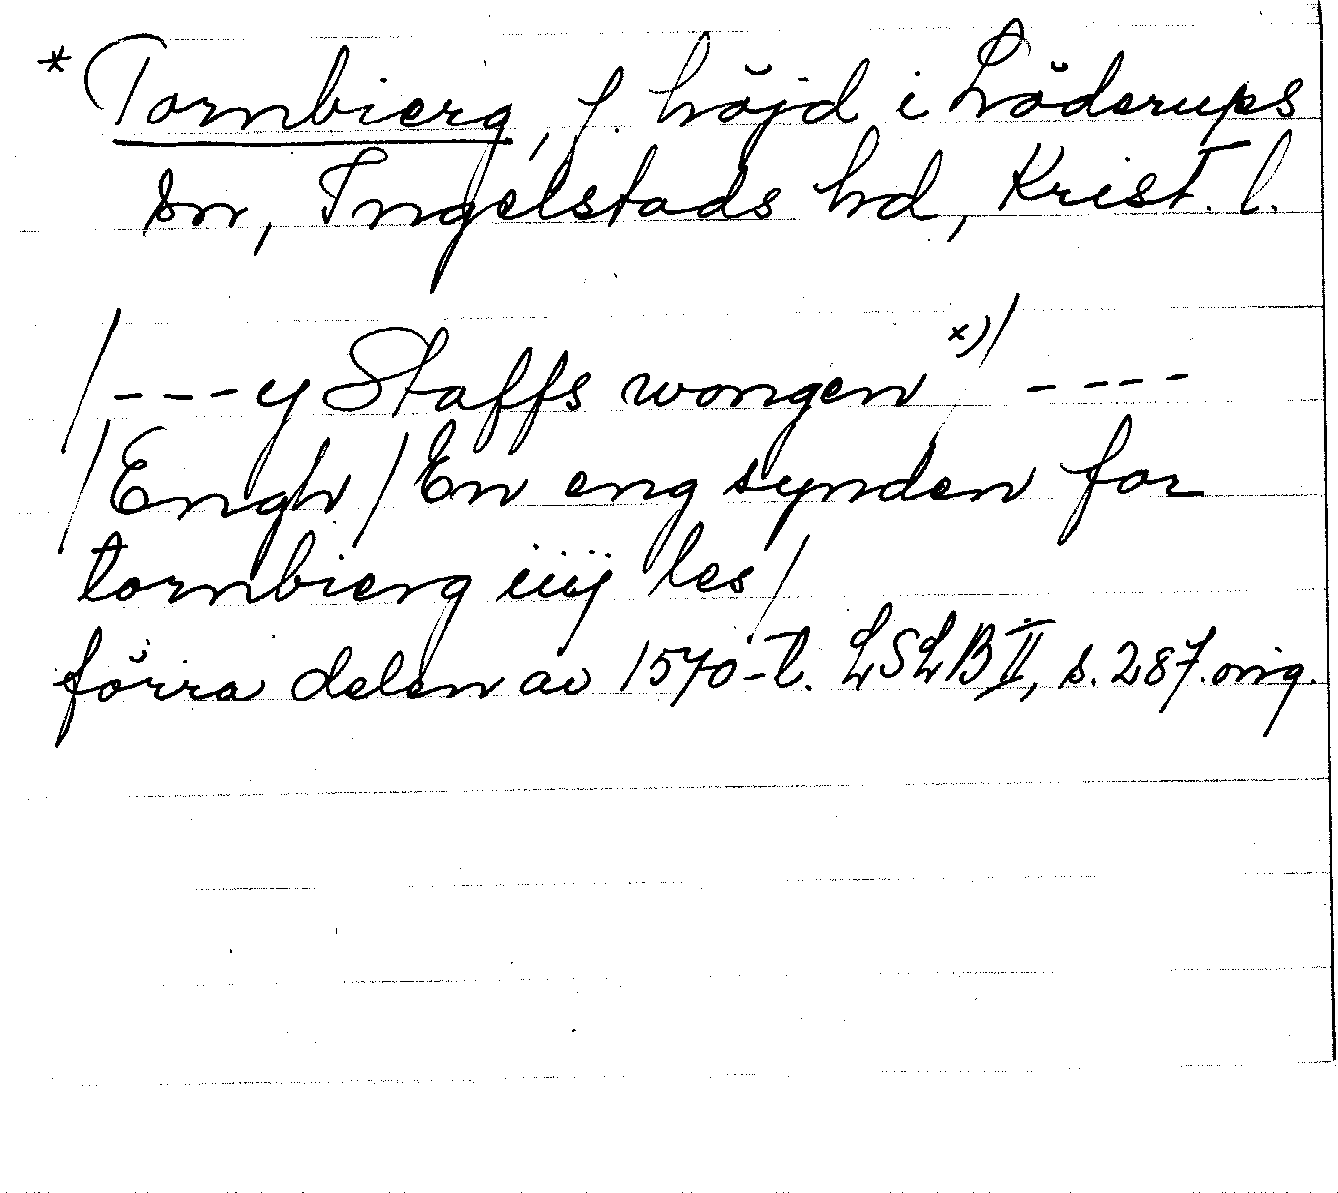 * Tornbierg, f. höjd i Löderups
sn, Ingelstads hd, Krist. l.
/---y Staffs wongen x)/ ----
/Engh/En eng synden for
tornbierg iiij les/
förra delen av 1570-t. LSLB II, s. 287. orig.